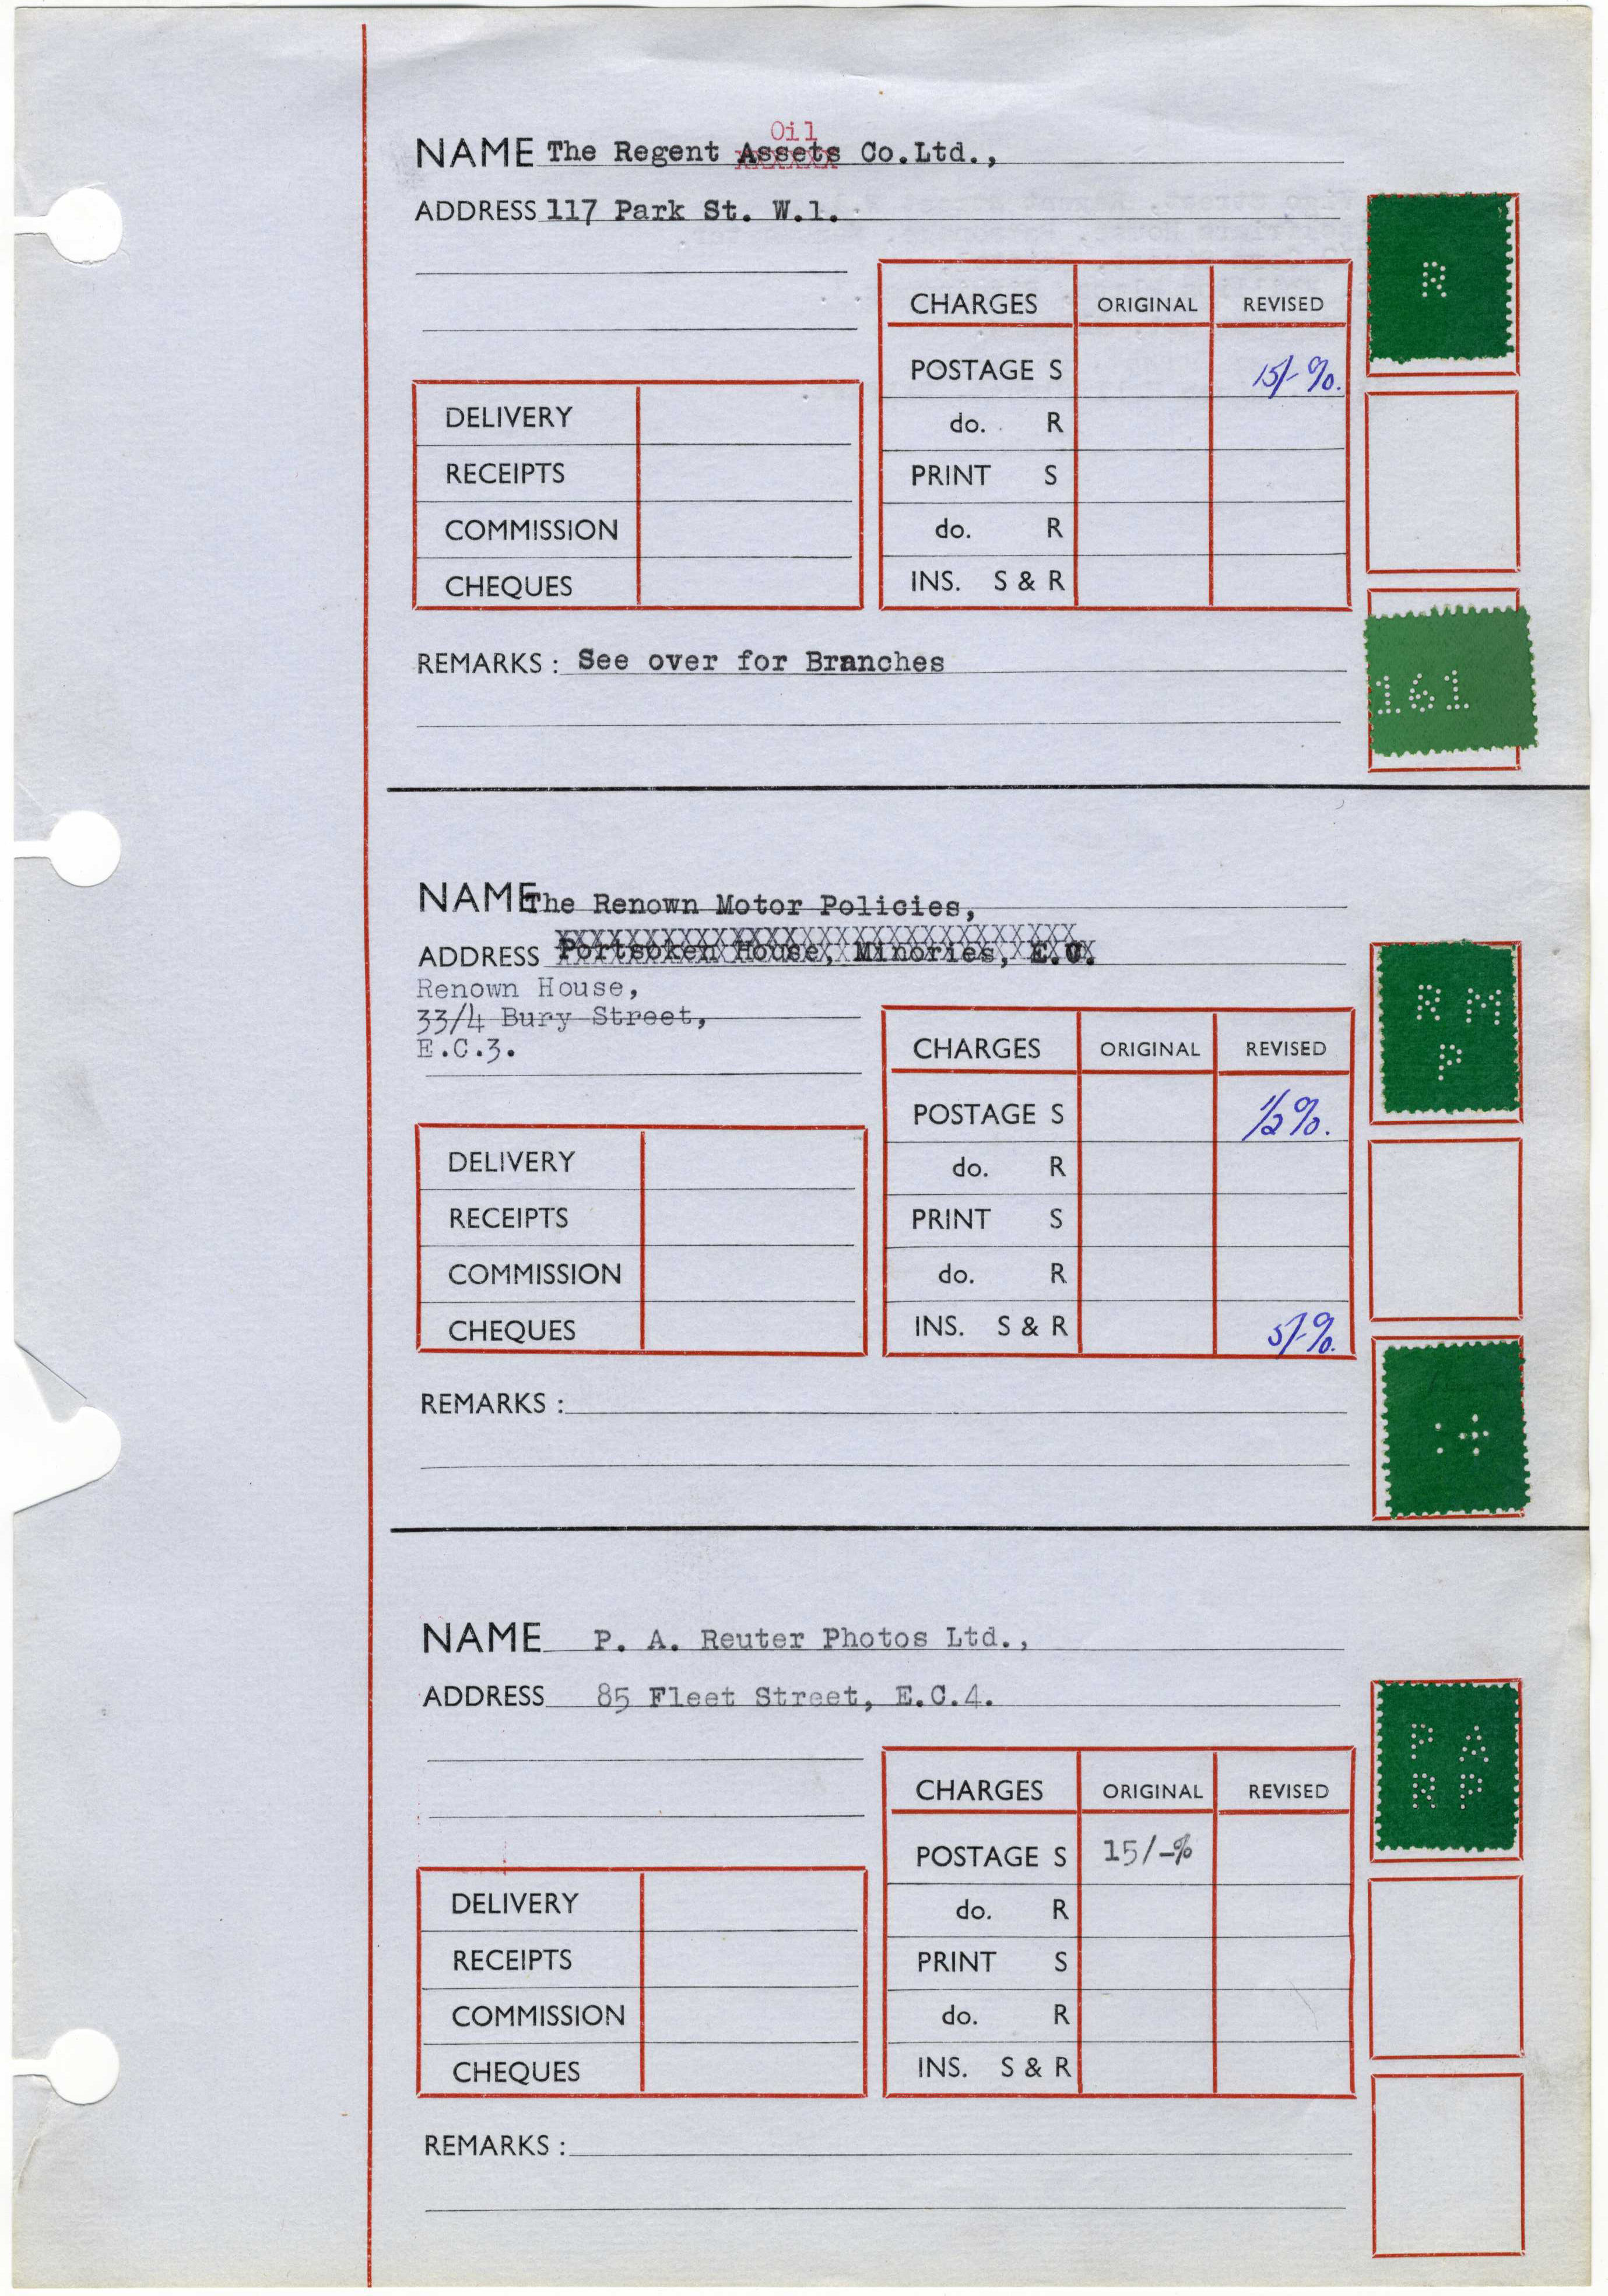 Oil
NAME The Regent Assets Co.Ltd.,
ADDRESS 117 Park St. W.1.
CHARGES ORIGINAL REVISED
POSTAGE S 15/- %.
do. R
PRINT S
do. R
INS. S & R
DELIVERY
RECEIPTS
COMMISSION
CHEQUES
REMARKS : See over for Branches
R
161
NAME The Renown Motor Policies,
ADDRESS Portsoken House, Minories, E.C.
Renown House,
33/4 Bury Street,
E.C.3.
CHARGES ORIGINAL REVISED
POSTAGE S ½%.
do. R
PRINT S
do. R
INS. S & R 5/-%.
DELIVERY
RECEIPTS
COMMISSION
CHEQUES
REMARKS :
R M
P
NAME P. A. Reuter Photos Ltd.,
ADDRESS 85 Fleet Street, E.C.4.
CHARGES ORIGINAL REVISED
POSTAGE S 15/-%
do. R
PRINT S
do. R
INS. S & R
DELIVERY
RECEIPTS
COMMISSION
CHEQUES
REMARKS :
P A
R P